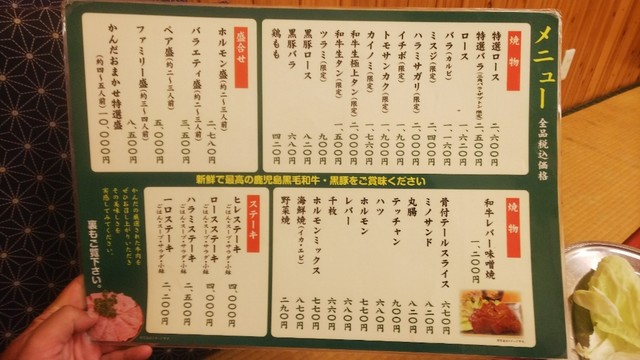 メニュー 全品税込価格
焼物
特選ロース 二、五〇〇円
特選バラ 二、六〇〇円
ロース 一、六二〇円
バラ(カルビ) 一、一六〇円
ミスジ(限定) 二、四〇〇円
ハラミサガリ(限定) 二、一〇〇円
イチボ(限定) 一、九〇〇円
トモサンカク(限定) 一、九〇〇円
カイノミ(限定) 一、七六〇円
和牛生極上タン(限定) 二、一〇〇円
和牛生タン(限定) 一、五〇〇円
ツラミ(限定) 九〇〇円
黒豚ロース 八二〇円
黒豚バラ 六八〇円
鶏もも 四二〇円
盛合せ
ホルモン盛(約二〜三人前) 二、七八〇円
バラエティ盛(約二〜三人前) 三、五〇〇円
ペア盛(約二〜三人前) 五、〇〇〇円
ファミリー盛(約三〜四人前) 八、五〇〇円
かんだおまかせ特選盛
(約四〜五人前) 一〇、〇〇〇円
新鮮で最高の鹿児島黒毛和牛・黒豚をご賞味ください
焼物
和牛レバー味噌焼
一、二〇〇円
骨付テールスライス 六七〇円
ミノサンド 八二〇円
丸腸 八二〇円
テッチャン 七〇〇円
ハツ 六八〇円
ホルモン 七七〇円
レバー 六八〇円
千枚 六七〇円
ホルモンミックス 七七〇円
海鮮焼(イカ・エビ) 八七〇円
野菜焼 二九〇円
ステーキ
ヒレステーキ
ごはん・スープ・サラダ・小鉢 四、〇〇〇円
ロースステーキ
ごはん・スープ・サラダ・小鉢 四、〇〇〇円
ハラミステーキ
ごはん・スープ・サラダ・小鉢 二、五〇〇円
一口ステーキ
ごはん・スープ・サラダ・小鉢 二、二〇〇円
かんだが厳選された牛肉を
ぜひお召し上がりいただき
その美味しさを
実感してみてください。
裏もご覧下さい。